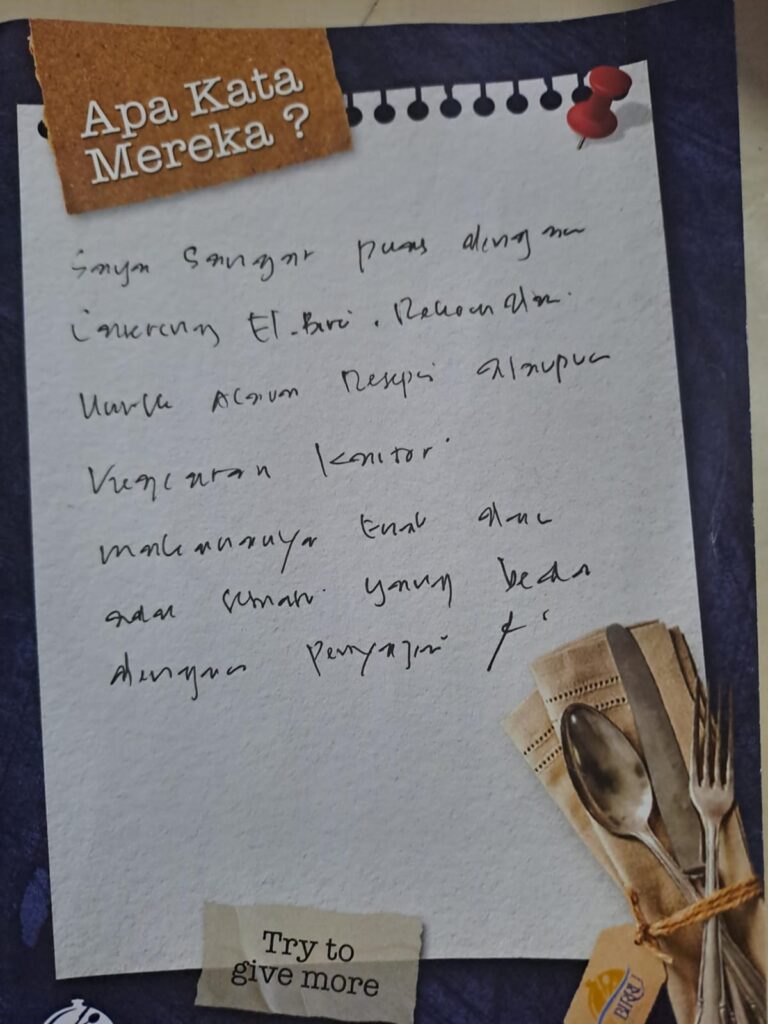 Apa Kata
Mereka ?
Saya Sangat puas dengan
Catering El-Biri. Rekomendasi
Untuk Acara Resepsi ataupun
Kegiatan Kantor
makanannya Enak dan
ada yang beda
dengan Penyaji
Try to
give more
BIRRU